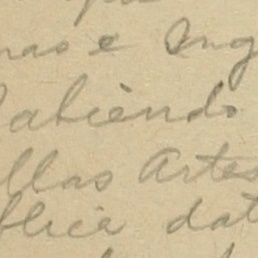 nas e Ing
atiendo
llas Artes
blica dat